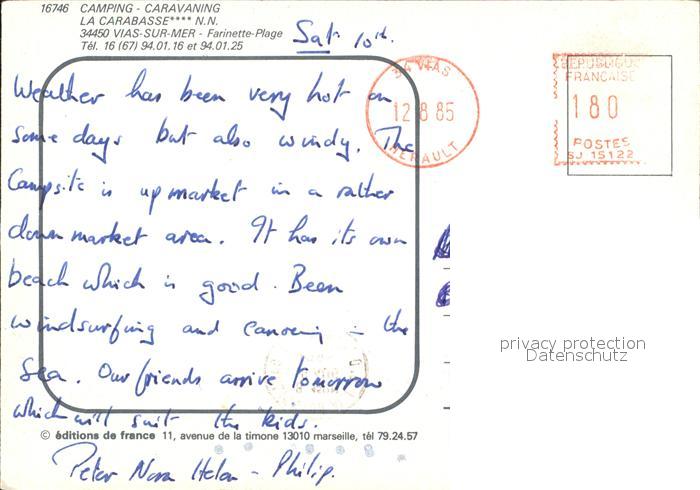 16746 CAMPING - CARAVANING
LA CARABASSE**** N.N.
34450 VIAS-SUR-MER - Farinette-Plage
Tél. 16 (67) 94.01.16 et 94.01.25
Sat 10th.
Weather has been very hot on
some days but also windy. The
Campsite is up market in a rather
down market area. It has its own
beach which is good. Been
windsurfing and canoeing in the
Sea. Our friends arrive tomorrow
which will suit the kids.
© éditions de france 11, avenue de la timone 13010 marseille, tél 79.24.57
Peter Nora Helen - Philip.
34 VIAS
12 8 85
HERAULT
REPUBLIQUE
FRANCAISE
180
POSTES
SJ 15122
privacy protection
Datenschutz